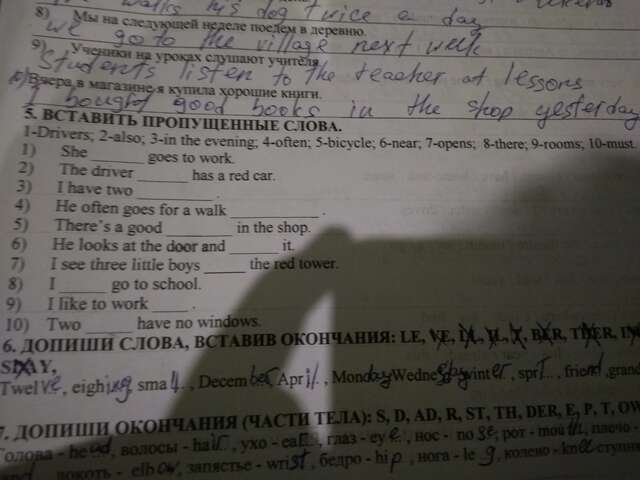 walks his dog twice a day
8) Мы на следующей неделе поедем в деревню.
We go to the village next week
9) Ученики на уроках слушают учителя.
Students listen to the teacher at lessons
10) Вчера в магазине я купила хорошие книги.
I bought good books in the shop yesterday
5. ВСТАВИТЬ ПРОПУЩЕННЫЕ СЛОВА.
1-Drivers; 2-also; 3-in the evening; 4-often; 5-bicycle; 6-near; 7-opens; 8-there; 9-rooms; 10-must.
1) She ______ goes to work.
2) The driver ______ has a red car.
3) I have two ________ .
4) He often goes for a walk __________ .
5) There's a good ________ in the shop.
6) He looks at the door and ______ it.
7) I see three little boys _____ the red tower.
8) I _____ go to school.
9) I like to work ____ .
10) Two _____ have no windows.
6. ДОПИШИ СЛОВА, ВСТАВИВ ОКОНЧАНИЯ: LE, VE, IL, LL, Y, BER, TBER, IN
SDAY,
Twelve, eighing, small.., December, April.., Monday Wednesday winter, spri..., friend, grand
7. ДОПИШИ ОКОНЧАНИЯ (ЧАСТИ ТЕЛА): S, D, AD, R, ST, TH, DER, E, P, T, OW
Голова - head, волосы - hair, ухо - ear..., глаз - eye., нос - nose, рот - mouth, плечо -
локоть - elbow, запястье - wrist, бедро - hip, нога - leg, колено - knee ступни